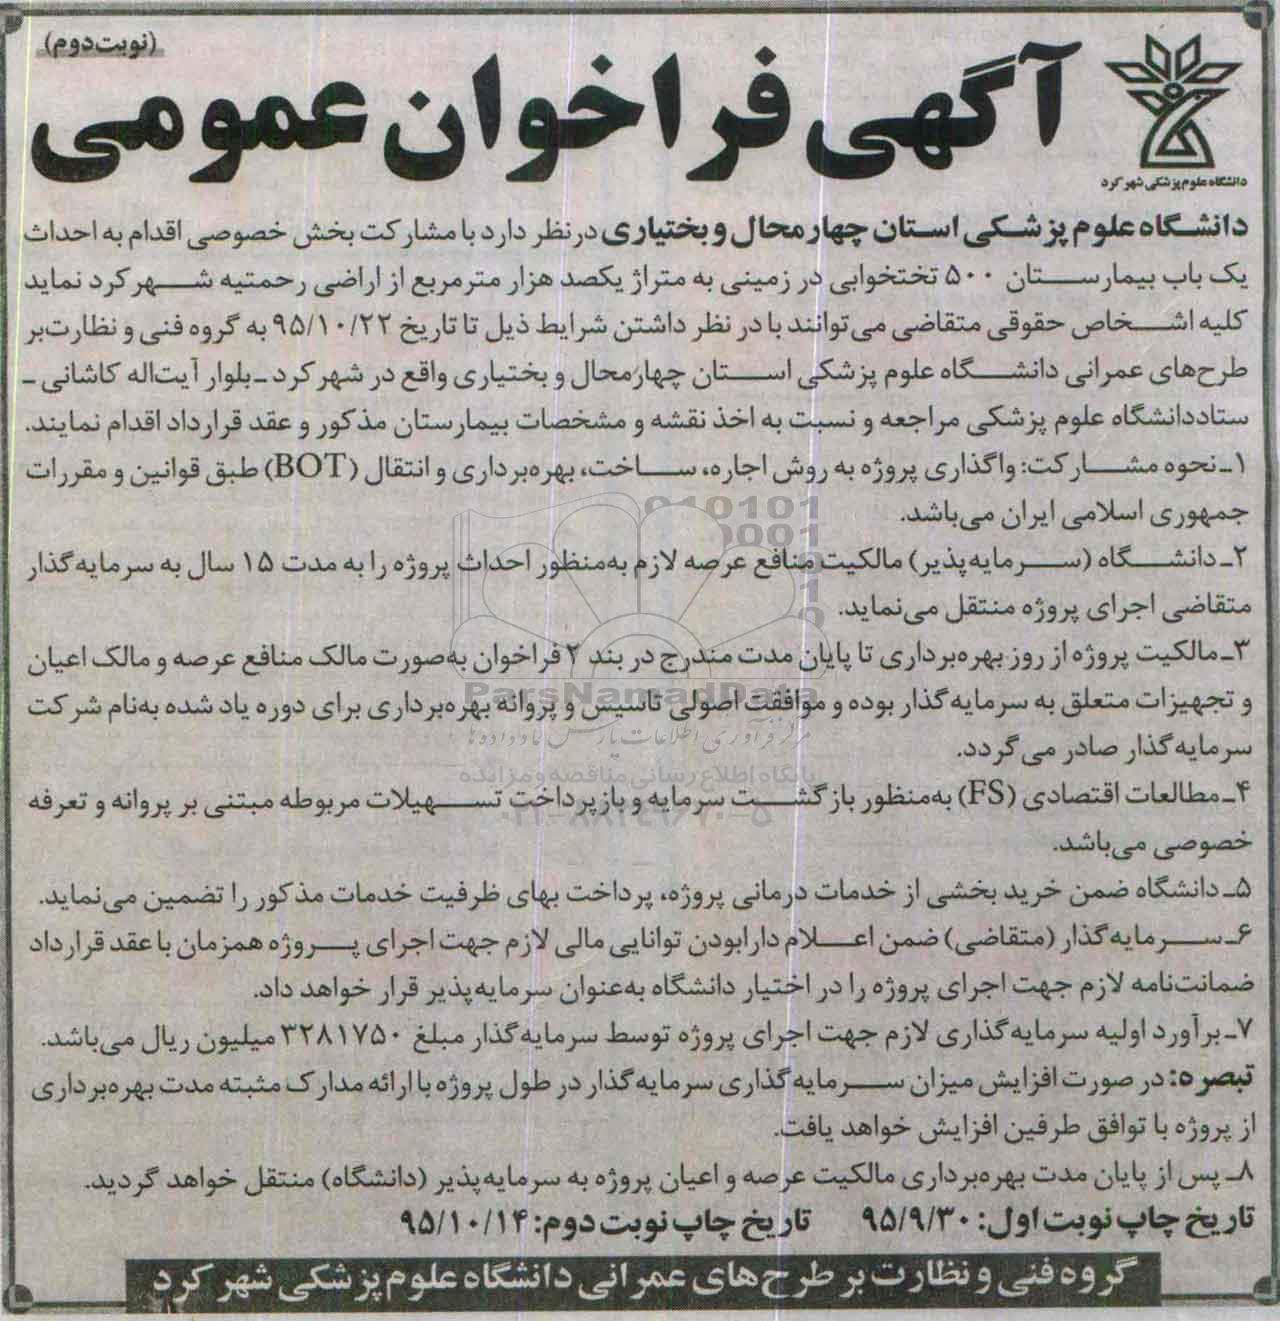 (نوبت دوم)
آگهی فراخوان عمومی
دانشگاه علوم پزشکی شهرکرد
دانشگاه علوم پزشکی استان چهارمحال و بختیاری درنظر دارد با مشارکت بخش خصوصی اقدام به احداث
یک باب بیمارستان ۵۰۰ تختخوابی در زمینی به متراژ یکصد هزار مترمربع از اراضی رحمتیه شهرکرد نماید
کلیه اشخاص حقوقی متقاضی می‌توانند با در نظر داشتن شرایط ذیل تا تاریخ ۹۵/۱۰/۲۲ به گروه فنی و نظارت‌بر
طرح‌های عمرانی دانشگاه علوم پزشکی استان چهارمحال و بختیاری واقع در شهرکرد ـ بلوار آیت‌اله کاشانی ـ
ستاددانشگاه علوم پزشکی مراجعه و نسبت به اخذ نقشه و مشخصات بیمارستان مذکور و عقد قرارداد اقدام نمایند.
۱ـ نحوه مشارکت: واگذاری پروژه به روش اجاره، ساخت، بهره‌برداری و انتقال (BOT) طبق قوانین و مقررات
جمهوری اسلامی ایران می‌باشد.
۲ـ دانشگاه (سرمایه‌پذیر) مالکیت منافع عرصه لازم به‌منظور احداث پروژه را به مدت ۱۵ سال به سرمایه‌گذار
متقاضی اجرای پروژه منتقل می‌نماید.
۳ـ مالکیت پروژه از روز بهره‌برداری تا پایان مدت مندرج در بند ۲ فراخوان به‌صورت مالک منافع عرصه و مالک اعیان
و تجهیزات متعلق به سرمایه‌گذار بوده و موافقت اصولی تاسیس و پروانه بهره‌برداری برای دوره یاد شده به‌نام شرکت
سرمایه‌گذار صادر می‌گردد.
۴ـ مطالعات اقتصادی (FS) به‌منظور بازگشت سرمایه و بازپرداخت تسهیلات مربوطه مبتنی بر پروانه و تعرفه
خصوصی می‌باشد.
۵ـ دانشگاه ضمن خرید بخشی از خدمات درمانی پروژه، پرداخت بهای ظرفیت خدمات مذکور را تضمین می‌نماید.
۶ـ سرمایه‌گذار (متقاضی) ضمن اعلام دارابودن توانایی مالی لازم جهت اجرای پروژه همزمان با عقد قرارداد
ضمانت‌نامه لازم جهت اجرای پروژه را در اختیار دانشگاه به‌عنوان سرمایه‌پذیر قرار خواهد داد.
۷ـ برآورد اولیه سرمایه‌گذاری لازم جهت اجرای پروژه توسط سرمایه‌گذار مبلغ ۳۲۸۱۷۵۰ میلیون ریال می‌باشد.
تبصره: در صورت افزایش میزان سرمایه‌گذاری سرمایه‌گذار در طول پروژه با ارائه مدارک مثبته مدت بهره‌برداری
از پروژه با توافق طرفین افزایش خواهد یافت.
۸ـ پس از پایان مدت بهره‌برداری مالکیت عرصه و اعیان پروژه به سرمایه‌پذیر (دانشگاه) منتقل خواهد گردید.
تاریخ چاپ نوبت اول: ۹۵/۹/۳۰ تاریخ چاپ نوبت دوم: ۹۵/۱۰/۱۴
گروه فنی و نظارت بر طرح‌های عمرانی دانشگاه علوم پزشکی شهرکرد
ParsNamadData
مرکز فرآوری اطلاعات پارس نماد داده‌ها
پایگاه اطلاع رسانی مناقصه و مزایده